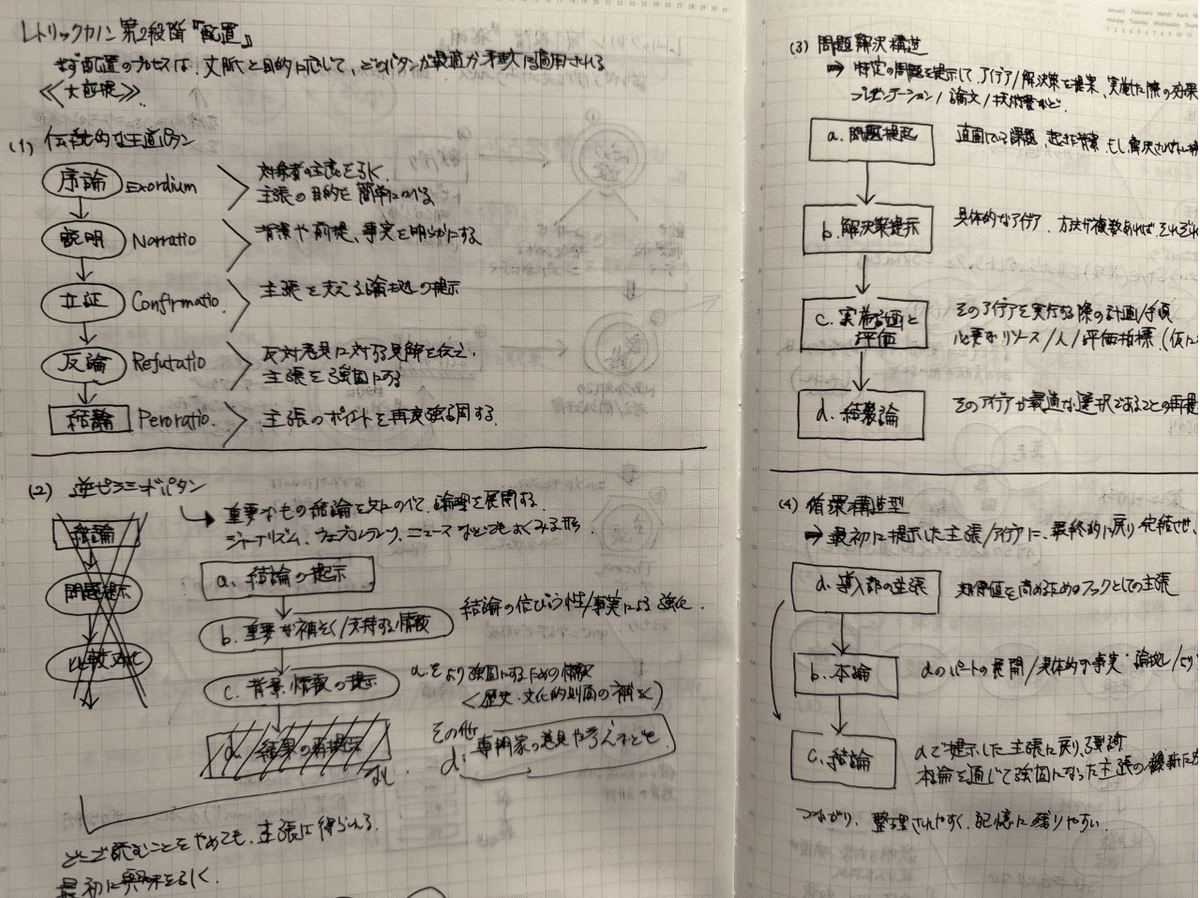 レトリックカノン第2段階『配置』
まず配置のプロセスは、文脈と目的に応じて、どのパターンが最適か柔軟に適用される
≪大前提≫
(1) 伝統的な王道パターン
序論 Exordium
対象者の注意を引く
主張の目的を簡単にのべる
説明 Narratio
背景や前提、事実を明らかにする
立証 Confirmatio
主張を支える論拠の提示
反論 Refutatio
反対意見に対する見解を伝え、
主張を強固にする
結論 Peroratio
主張のポイントを再度強調する
(2) 逆ピラミッドパターン
重要なもの 結論を先にのべて、論理を展開する
ジャーナリズム、ウェブコンテンツ、ニュースなどでもよくみる形
結論
問題提示
a. 結論の提示
b. 重要な補そく/支持する情報
結論の信ぴょう性/事実による強化
c. 背景情報の提示
a.をより強固にするための情報
<歴史・文化的側面の補そく>
d. 結果の再提示
なし
その他
d: 専門家の意見や考えなども
どこで読むことをやめても、主張は得られる
最初に興味を引く
(3) 問題解決構造
⇒ 特定の問題を提示して、アイデア/解決策を提案、実施した際の効果
プレゼンテーション/論文/技術書など
a. 問題提起
直面している課題、起きた背景、もし解決されない
b. 解決策提示
具体的なアイデア、方法が複数あれば、それぞれ
c. 実施計画と
評価
そのアイデアを実行する際の計画/手順
必要なリソース/人/評価指標
d. 結論
そのアイデアが最適な選択であることの再提
(4) 循環構造型
⇒ 最初に提示した主張/アイデアに、最終的に戻り完結させ、
a. 導入部の主張
期待値を高めるためのフックとしての主張
b. 本論
aのパートの展開/具体的な事実・論拠/より
c. 結論
aで提示した主張に戻り、強調
本論を通じて強固になった主張の
つながり、整理されやすく、記憶に残りやすい